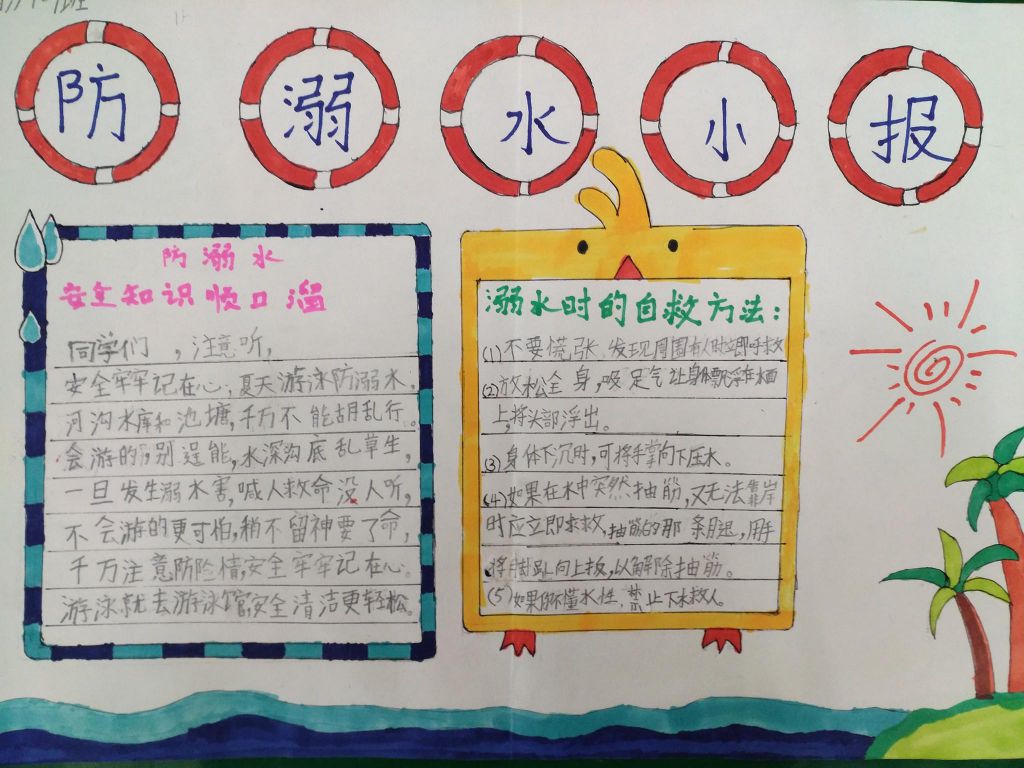 防溺水小报
防溺水
安全知识顺口溜
同学们，注意听，
安全牢牢记在心，夏天游泳防溺水，
河沟水库和池塘，千万不能胡乱行。
会游的，别逞能，水深沟底乱草生，
一旦发生溺水害，喊人救命没人听，
不会游的更可怕，稍不留神要了命，
千万注意防险情，安全牢牢记在心。
游泳就去游泳馆安全清洁更轻松。
溺水时的自救方法：
(1)不要慌张，发现周围有人时立即呼救
(2)放松全身，吸足气让身体飘浮在水面
上，将头部浮出。
(3)身体下沉时，可将手掌向下压水。
(4)如果在水中突然抽筋，又无法靠岸
时应立即求救，抽筋的那条腿，用手
将脚趾向上扳，以解除抽筋。
(5)如果你不懂水性，禁止下水救人。